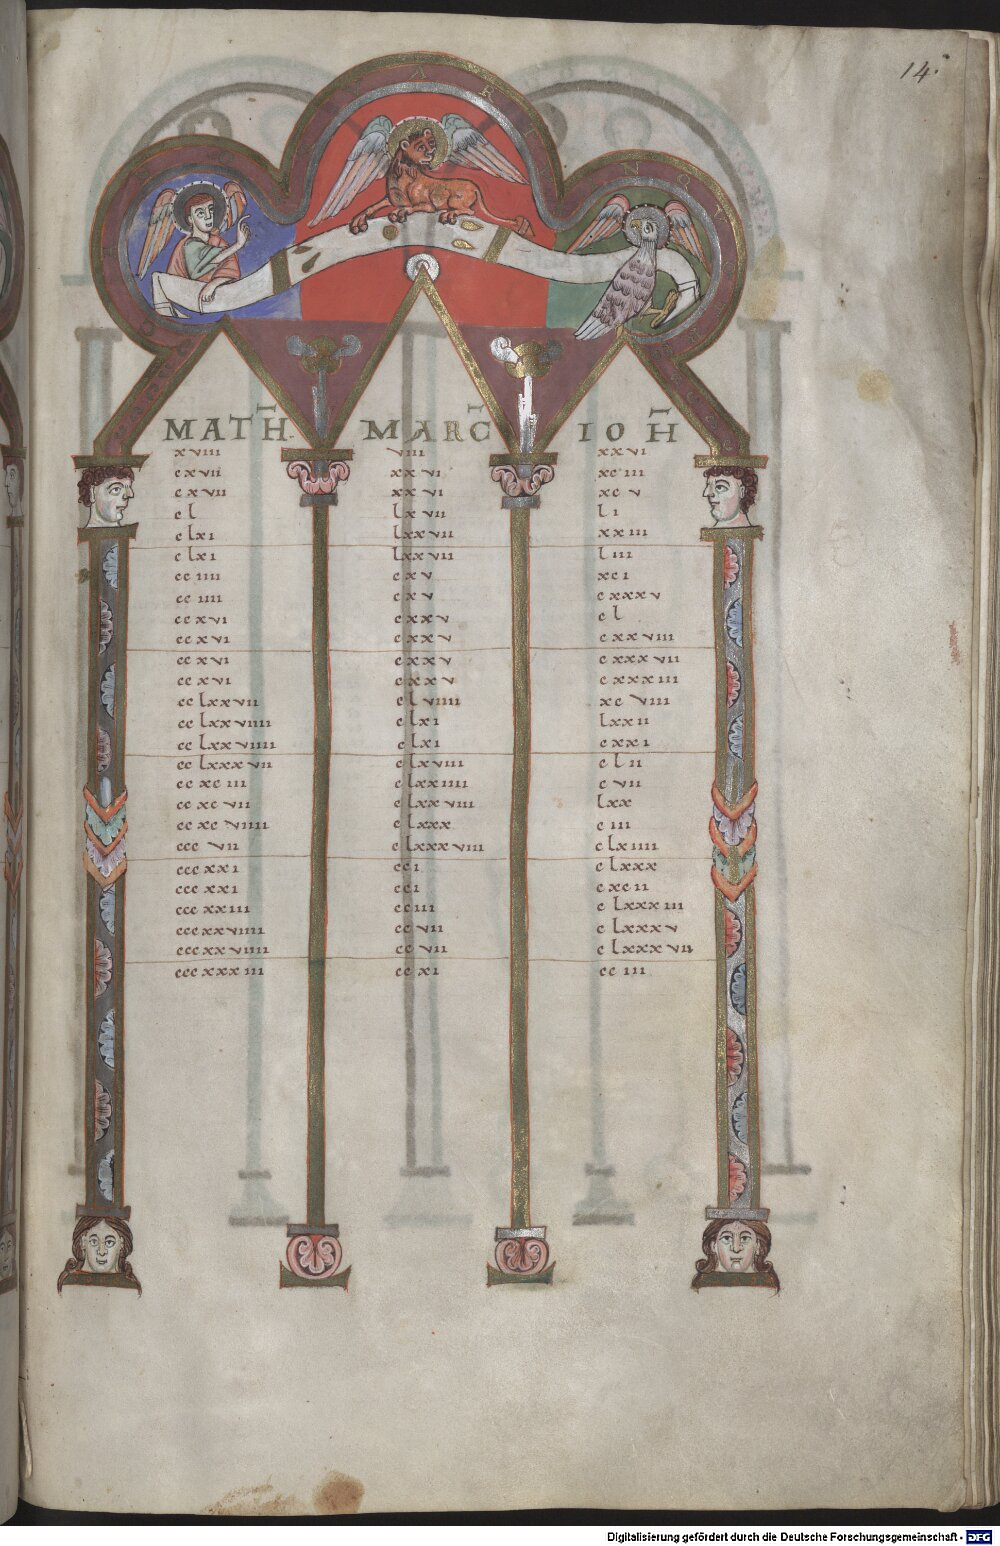 14.
MATH̅. MARC̅ IOH̅
xviii viii xxvi
cxvii xxvi xciii
cxvii xxvi xcv
cl lxvii li
clxi lxxvii xxiii
clxi lxxvii liii
cciiii cxv xci
cciiii cxv cxxxv
ccxvi cxxv cl
ccxvi cxxv cxxviii
ccxvi cxxv cxxxvii
ccxvi cxxv cxxxiii
cclxxvii clviiii xcviii
cclxxviiii clxi lxxii
cclxxviiii clxi cxxi
cclxxxvii clxviii clii
ccxciii clxxiiii cvii
ccxcvii clxxviii lxx
ccxcviiii clxxx ciii
cccvii clxxxviii clxiiii
cccxxi cci clxxx
cccxxi cci cxcii
cccxxiii cciii clxxxiii
cccxxviiii ccvii clxxxv
cccxxviiii ccvii clxxxvii
cccxxxiii ccxi cciii
Digitalisierung gefördert durch die Deutsche Forschungsgemeinschaft - DFG